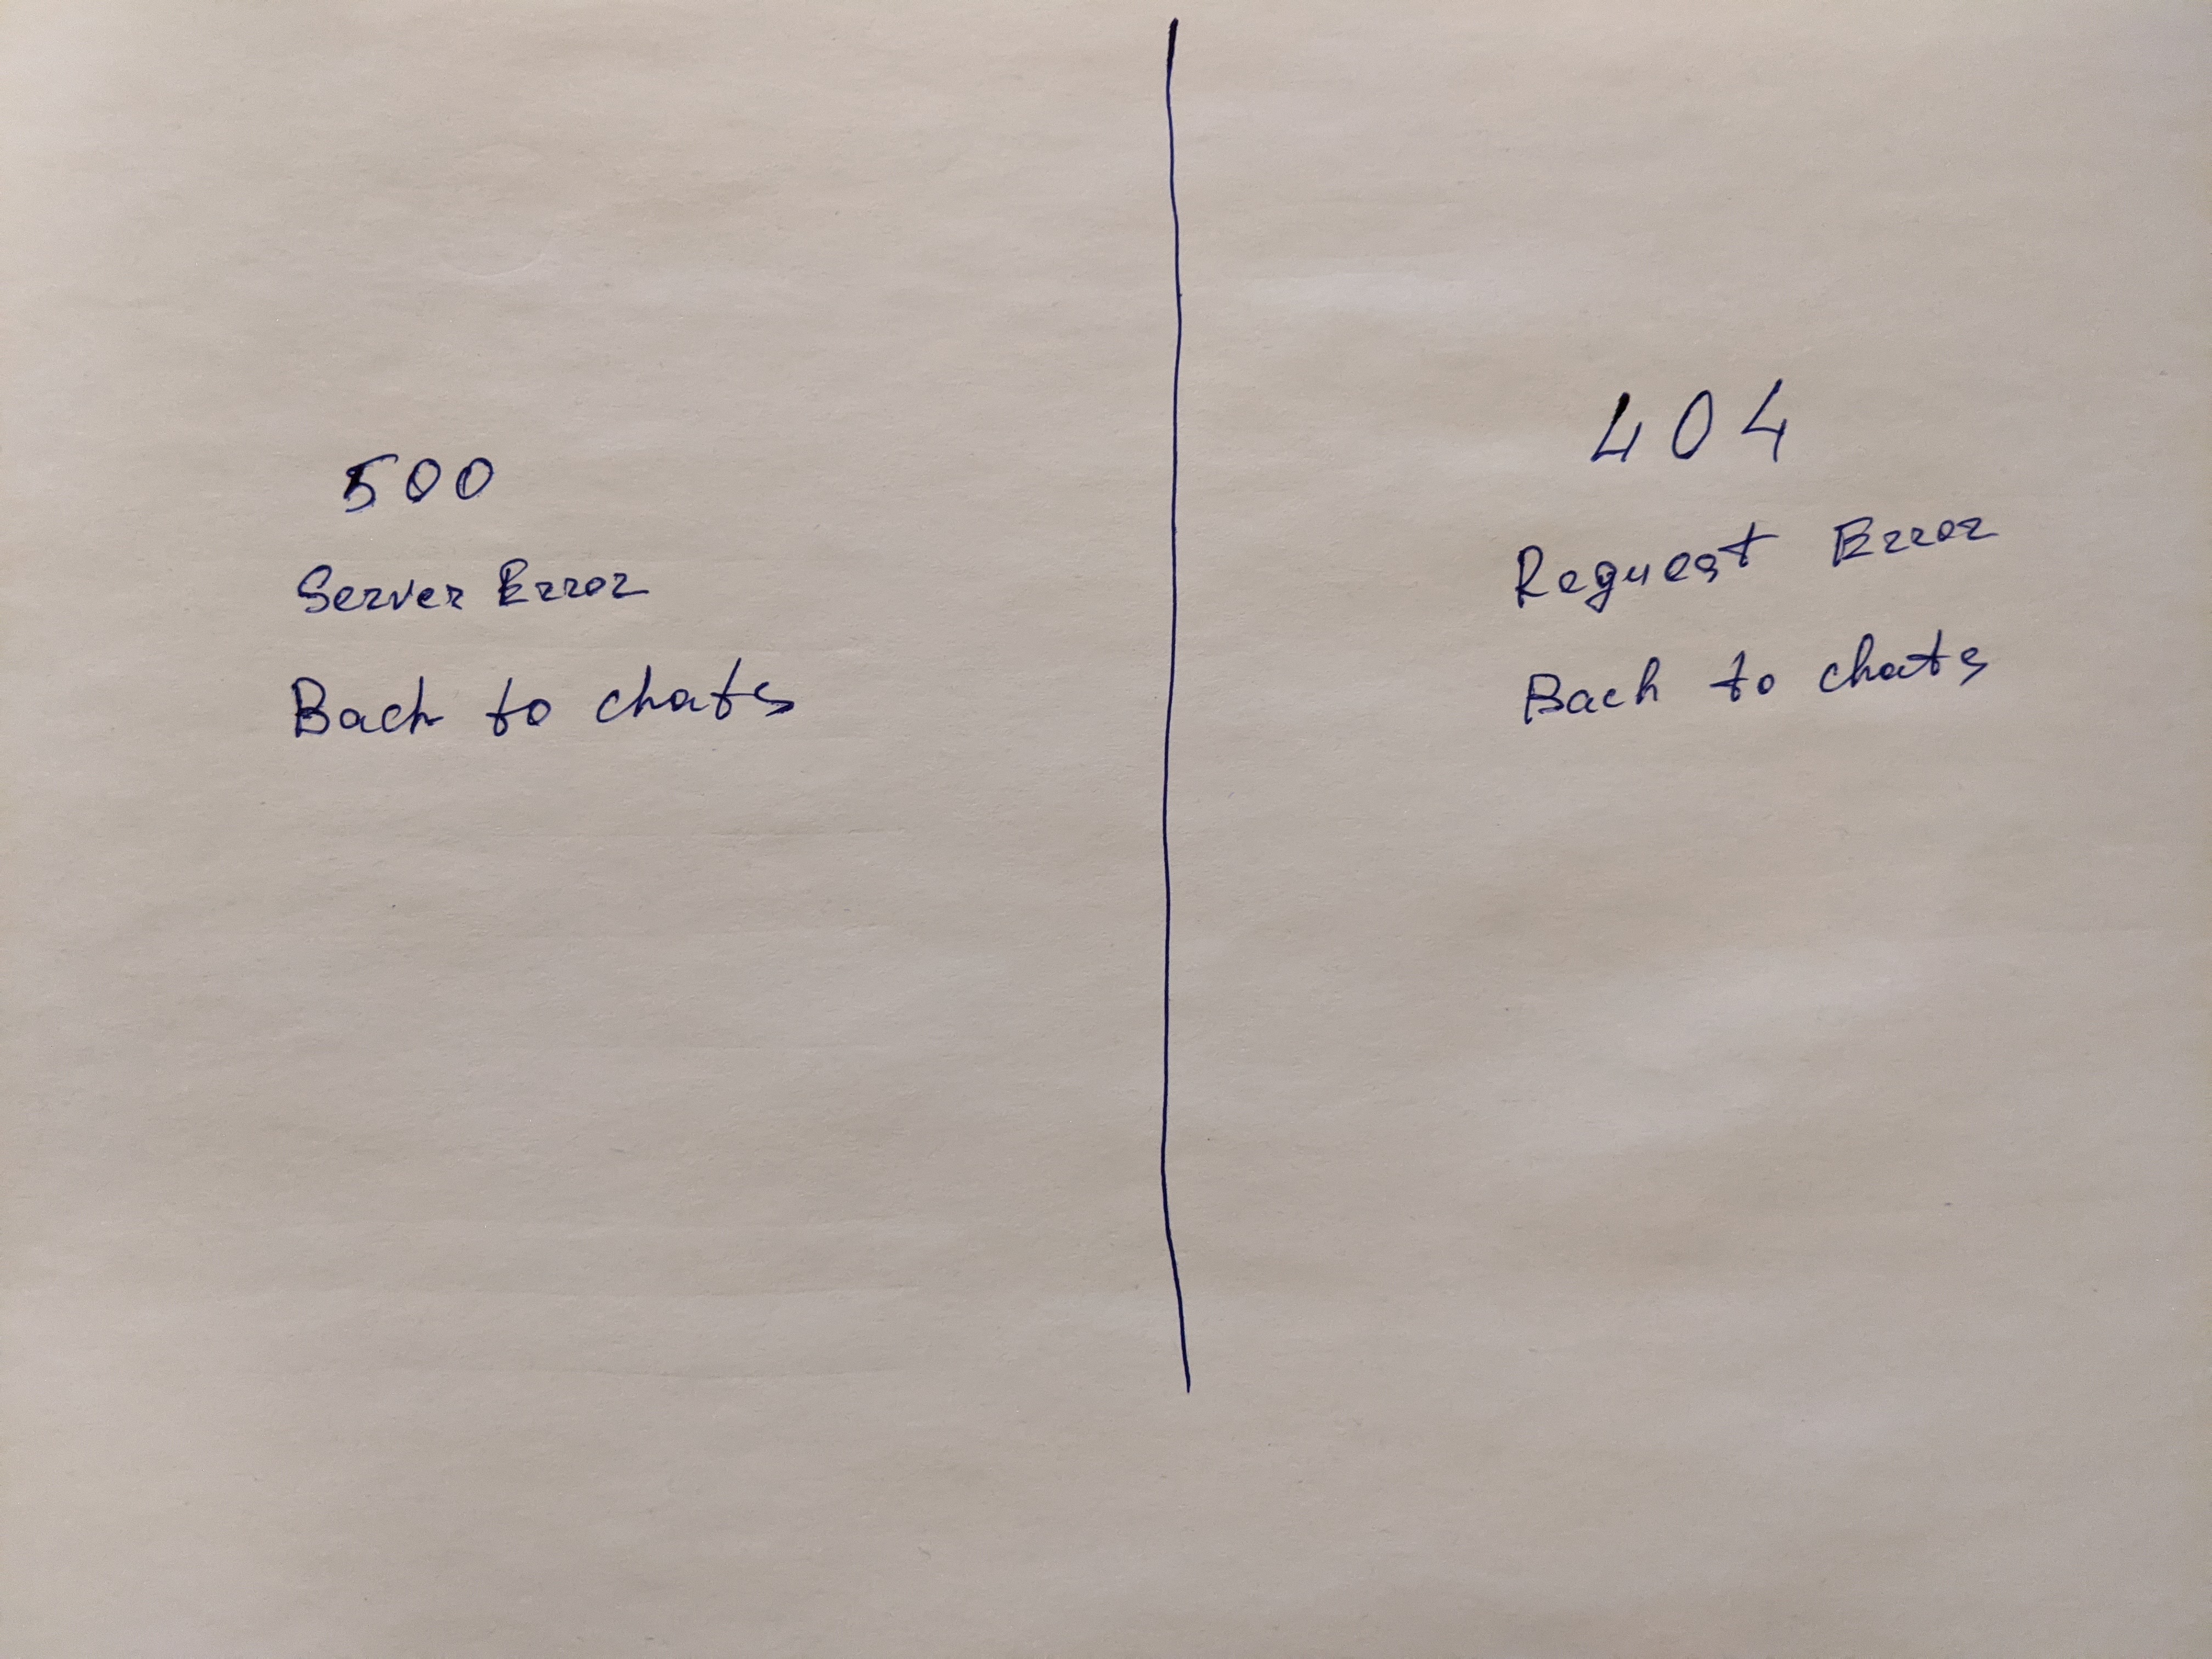 500
Server Error
Back to chats
404
Request Error
Back to chats